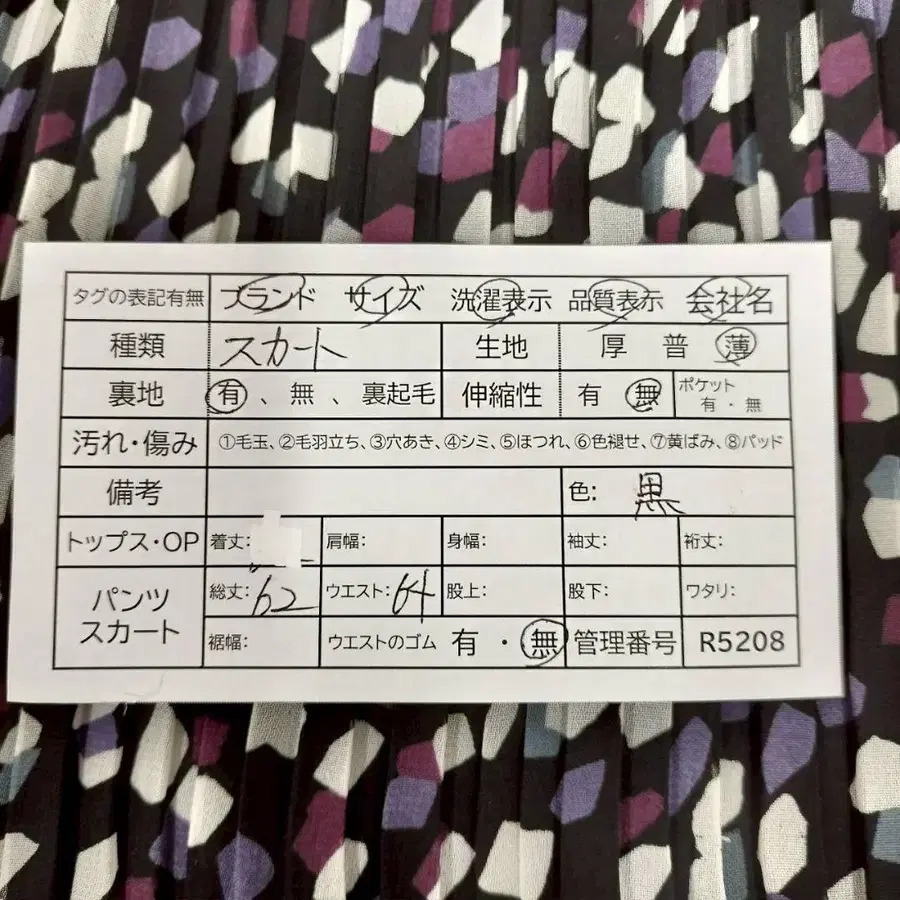 タグの表記有無 ブランド サイズ 洗濯表示 品質表示 会社名
種類 スカート 生地 厚 普 薄
裏地 有、無、裏起毛 伸縮性 有 無 ポケット 有・無
汚れ・傷み ①毛玉、②毛羽立ち、③穴あき、④シミ、⑤ほつれ、⑥色褪せ、⑦黄ばみ、⑧パッド
備考 色: 黒
トップス・OP 着丈: 肩幅: 身幅: 袖丈: 裄丈:
パンツ スカート 総丈: 62 ウエスト: 64 股上: 股下: ワタリ:
裾幅: ウエストのゴム 有・無 管理番号 R5208